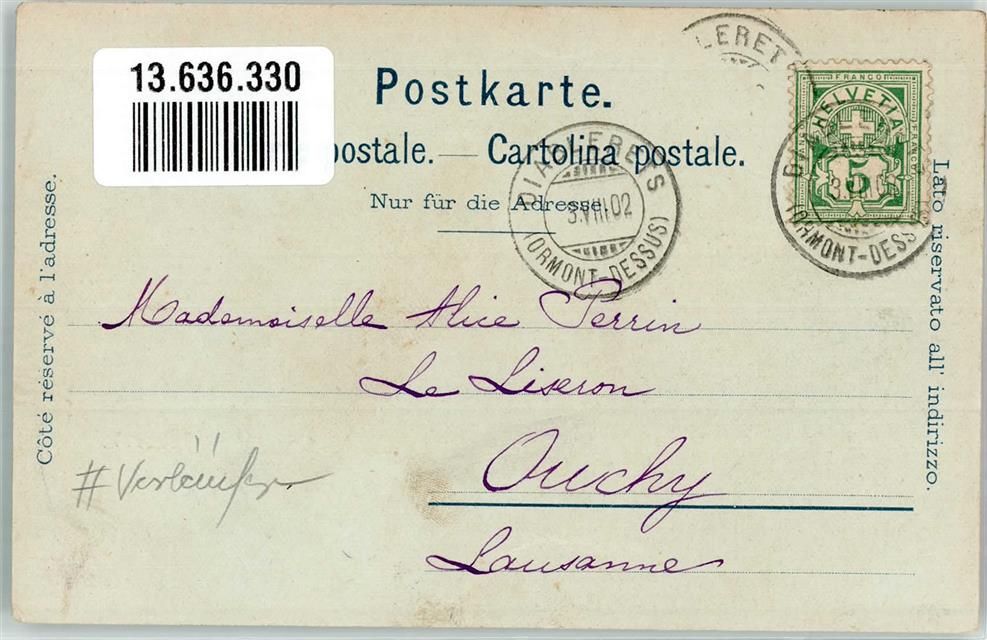 13.636.330
Postkarte.
postale. — Cartolina postale.
Nur für die Adresse.
LERET
DIABLERETS
3.VIII.02
(ORMONT-DESSUS)
FRANCO
HELVETIA
FRANCO
FRANCO
5
3.VIII.02
(ORMONT-DESSUS
Côté réservé à l'adresse.
Lato riservato all' indirizzo.
Mademoiselle Alice Perrin
Le Liseron
Ouchy
Lausanne